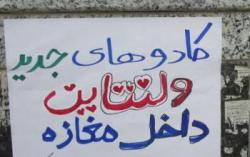 کادوهای جدید
ولنتاین
داخل مغازه